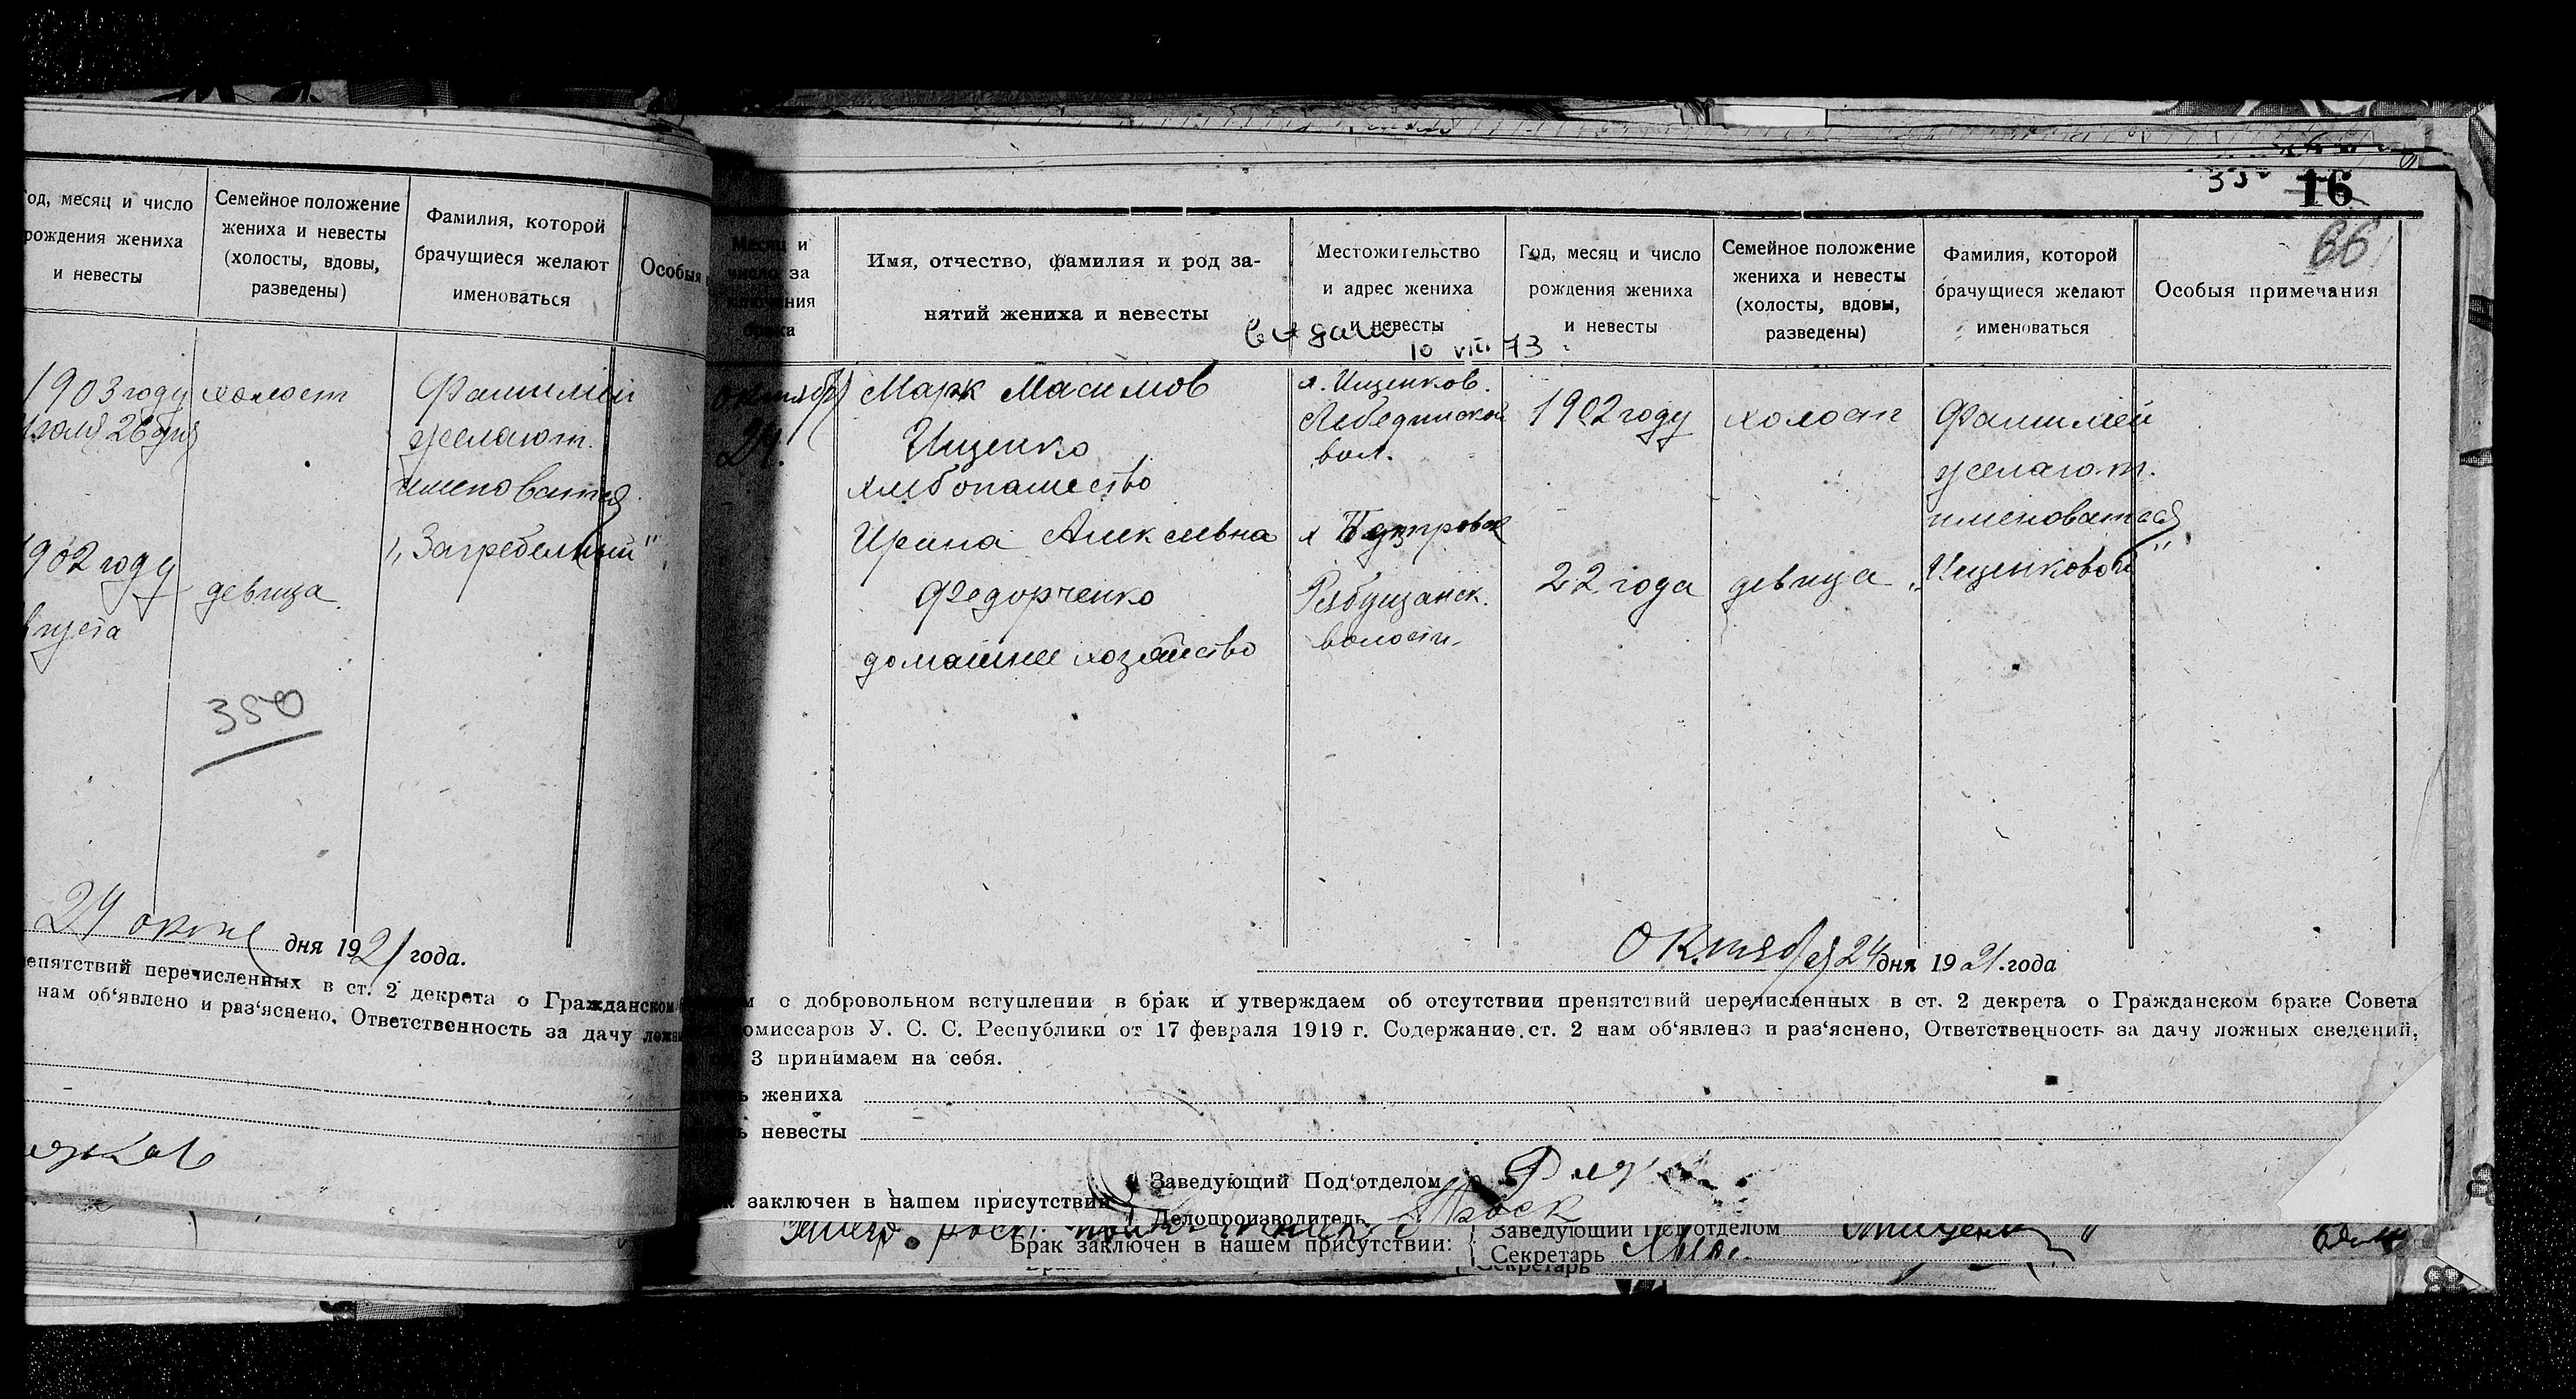 од, месяц и число
рождения жениха
и невесты
Семейное положение
жениха и невесты
(холосты, вдовы,
разведены)
Фамилия, которой
брачущиеся желают
именоваться
Особыя
1903 году
26 дня
холост
Фамилией
желают
именоватся
„Загребельный"
902 году
девица
вгуста
350
24 окт дня 1921 года.
епятствий перечисленных в ст. 2 декрета о Гражданском
нам об'явлено и раз'яснено. Ответственность за дачу ложн
16
66
Месяц и
число за
ключения
брака
Имя, отчество, фамилия и род за-
нятий жениха и невесты
Местожительство
и адрес жениха
и невесты
Год, месяц и число
рождения жениха
и невесты
Семейное положение
жениха и невесты
(холосты, вдовы,
разведены)
Фамилия, которой
брачущиеся желают
именоваться
Особыя примечания
10 VIII 73
октября
24.
Марк Масимов
Ищенко
хлебопашество
Ирина Алексеевна
Федорченко
домашнее хозяйство
х. Ищенков.
Лебединской
вол.
х
Рябущанск.
волости.
1902 году
22 года
холост
девица
Фамилией
желают.
именоватся
„Ищенковой"
Октября 24 дня 1921. года
м о добровольном вступлении в брак и утверждаем об отсутствии препятствий перечисленных в ст. 2 декрета о Гражданском браке Совета
омиссаров У. С. С. Республики от 17 февраля 1919 г. Содержание ст. 2 нам об'явлено и раз'яснено, Ответственность за дачу ложных сведений,
3 принимаем на себя.
жениха
невесты
заключен в нашем присутствии
Заведующий Под'отделом
Делопроизводитель
Брак заключен в нашем присутствии:
Заведующий Под'отделом
Секретарь
Секретарь